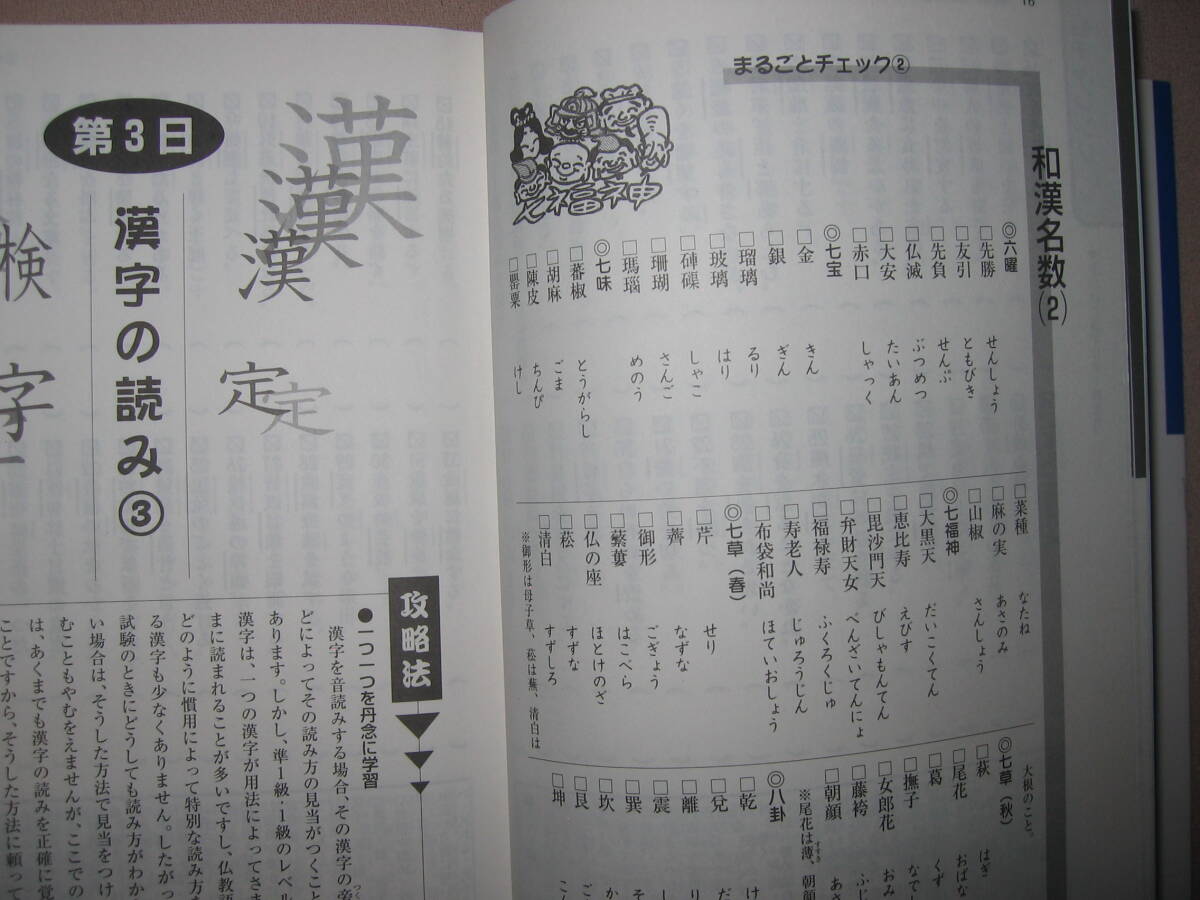 16
まるごとチェック②
和漢名数(2)
七福神
◎六曜
□先勝 せんしょう
□友引 ともびき
□先負 せんぶ
□仏滅 ぶつめつ
□大安 たいあん
□赤口 しゃっく
◎七宝
□金 きん
□銀 ぎん
□瑠璃 るり
□玻璃 はり
□硨磲 しゃこ
□珊瑚 さんご
□瑪瑙 めのう
◎七味
□蕃椒 とうがらし
□胡麻 ごま
□陳皮 ちんぴ
□罌粟 けし
□菜種 なたね
□麻の実 あさのみ
□山椒 さんしょう
◎七福神
□大黒天 だいこくてん
□恵比寿 えびす
□毘沙門天 びしゃもんてん
□弁財天女 べんざいてんにょ
□福禄寿 ふくろくじゅ
□寿老人 じゅろうじん
□布袋和尚 ほていおしょう
◎七草(春)
□芹 せり
□薺 なずな
□御形 ごぎょう
□蘩蔞 はこべら
□仏の座 ほとけのざ
□菘 すずな
□清白 すずしろ
※御形は母子草、菘は蕪、清白は
大根のこと。
◎七草(秋)
□萩 はぎ
□尾花 おばな
□葛 くず
□撫子 なでし
□女郎花 おみ
□藤袴 ふじ
□朝顔 あさ
※尾花は薄、朝顔
すすき
◎八卦
□乾 け
□兌 だ
□離 り
□震 し
□巽 そ
□坎 か
□艮 ご
□坤 こ
第3日
漢字の読み③
漢
漢
漢
定
定
検
字
攻略法
●一つ一つを丹念に学習
漢字を音読みする場合、その漢字の旁
つく
どによってその読み方の見当がつくこと
あります。しかし、準1級・1級のレベル
漢字は、一つの漢字が用法によってさま
まに読まれることが多いですし、仏教語
どのように慣用によって特別な読み方を
る漢字も少なくありません。したがっ
試験のときにどうしても読み方がわか
い場合は、そうした方法で見当をつけ
むこともやむをえませんが、ここでの
は、あくまでも漢字の読みを正確に覚
ことですから、そうした方法に頼って